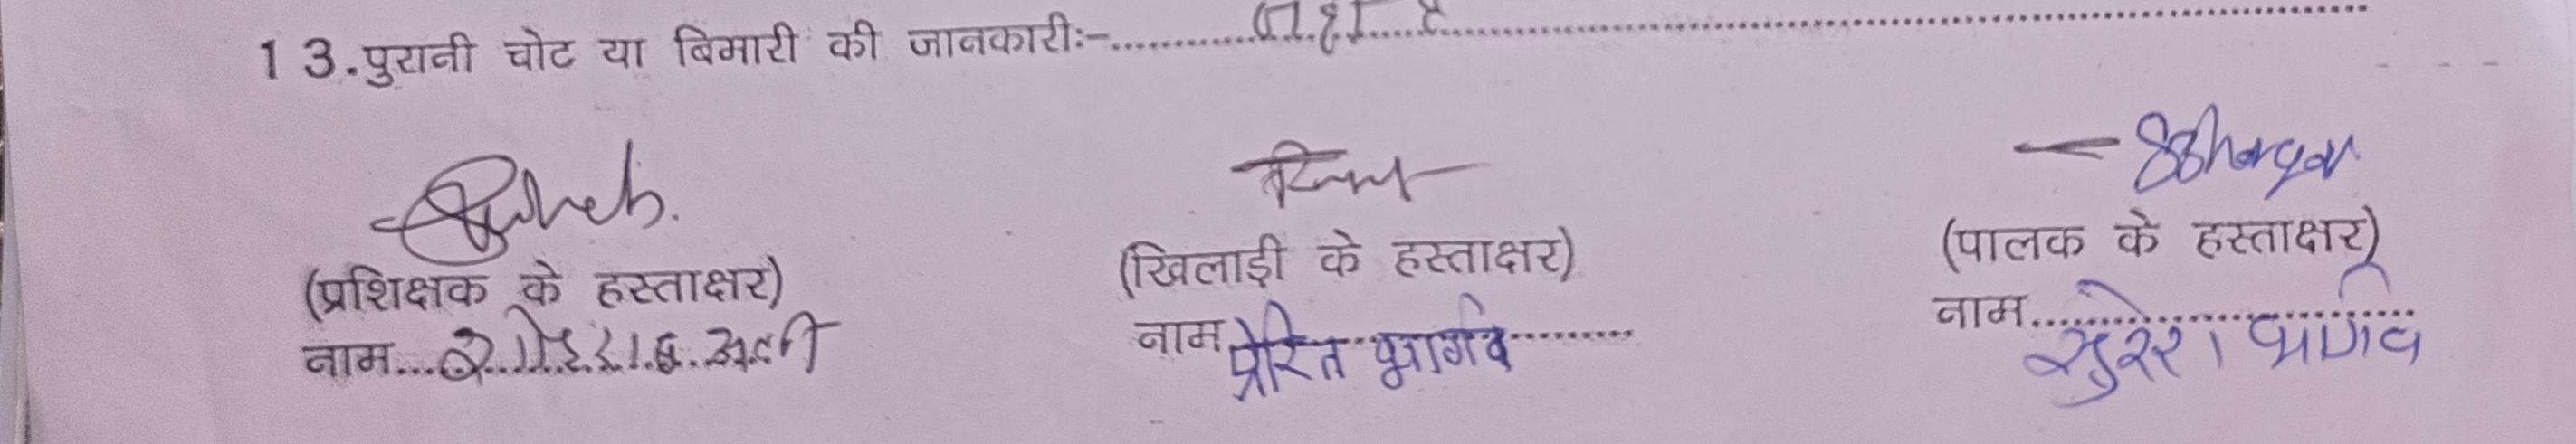 13.पुरानी चोट या बिमारी की जानकारीः-............नहीं है............
SBhargav
(प्रशिक्षक के हस्ताक्षर) (खिलाड़ी के हस्ताक्षर) (पालक के हस्ताक्षर)
नाम... नाम प्रेरित भार्गव नाम... सुरेश भार्गव